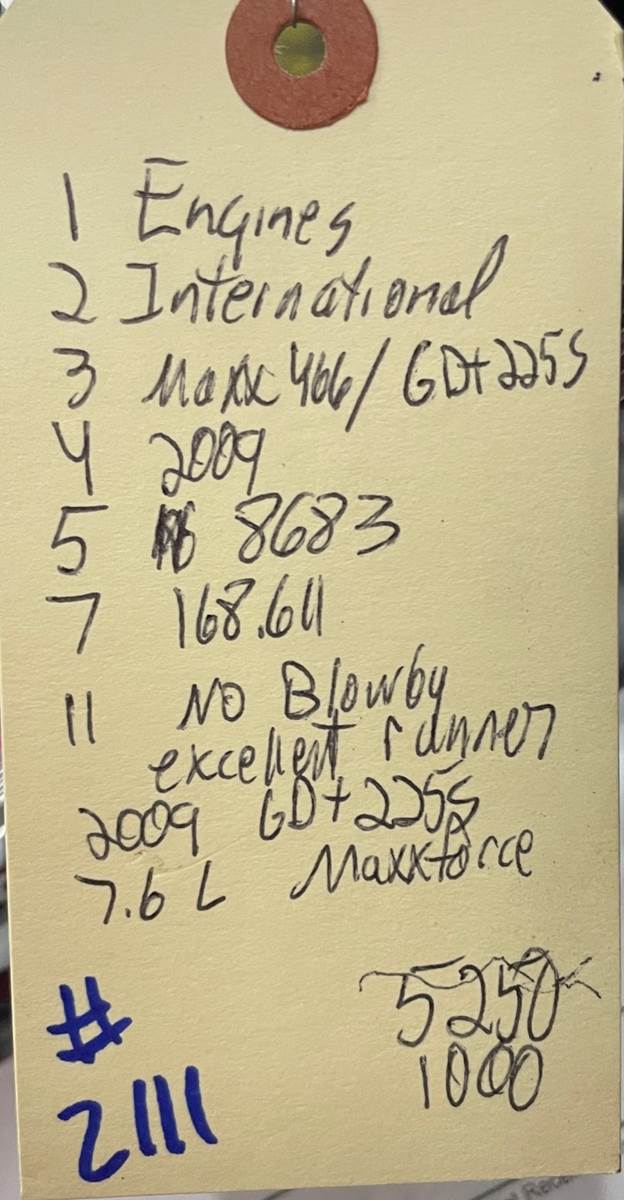 1 Engines
2 International
3 Maxx 466/GDT225S
4 2009
5 8683
7 168.611
11 NO Blowby
excellent runner
2009 GDT225S
7.6 L Maxxforce
5250
1000
#
2111